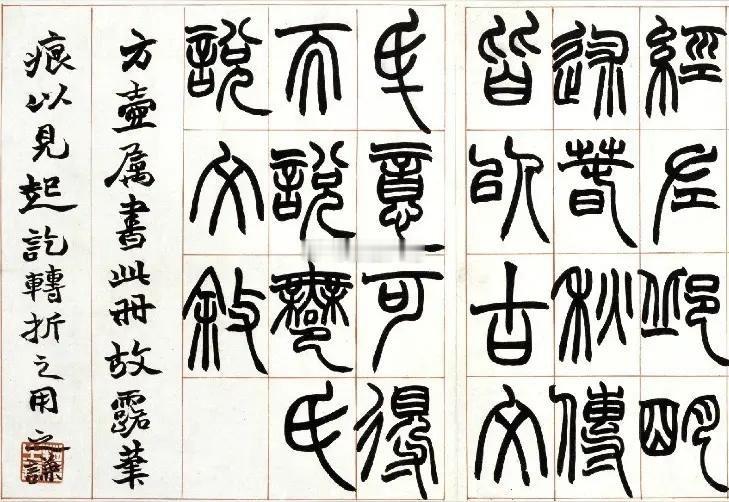 經左邱明
述春秋傳
皆㠯古文
氒意可得
而說鄦氏
說文敘
方壺屬書此冊故露筆
痕以見起訖轉折之用之謙